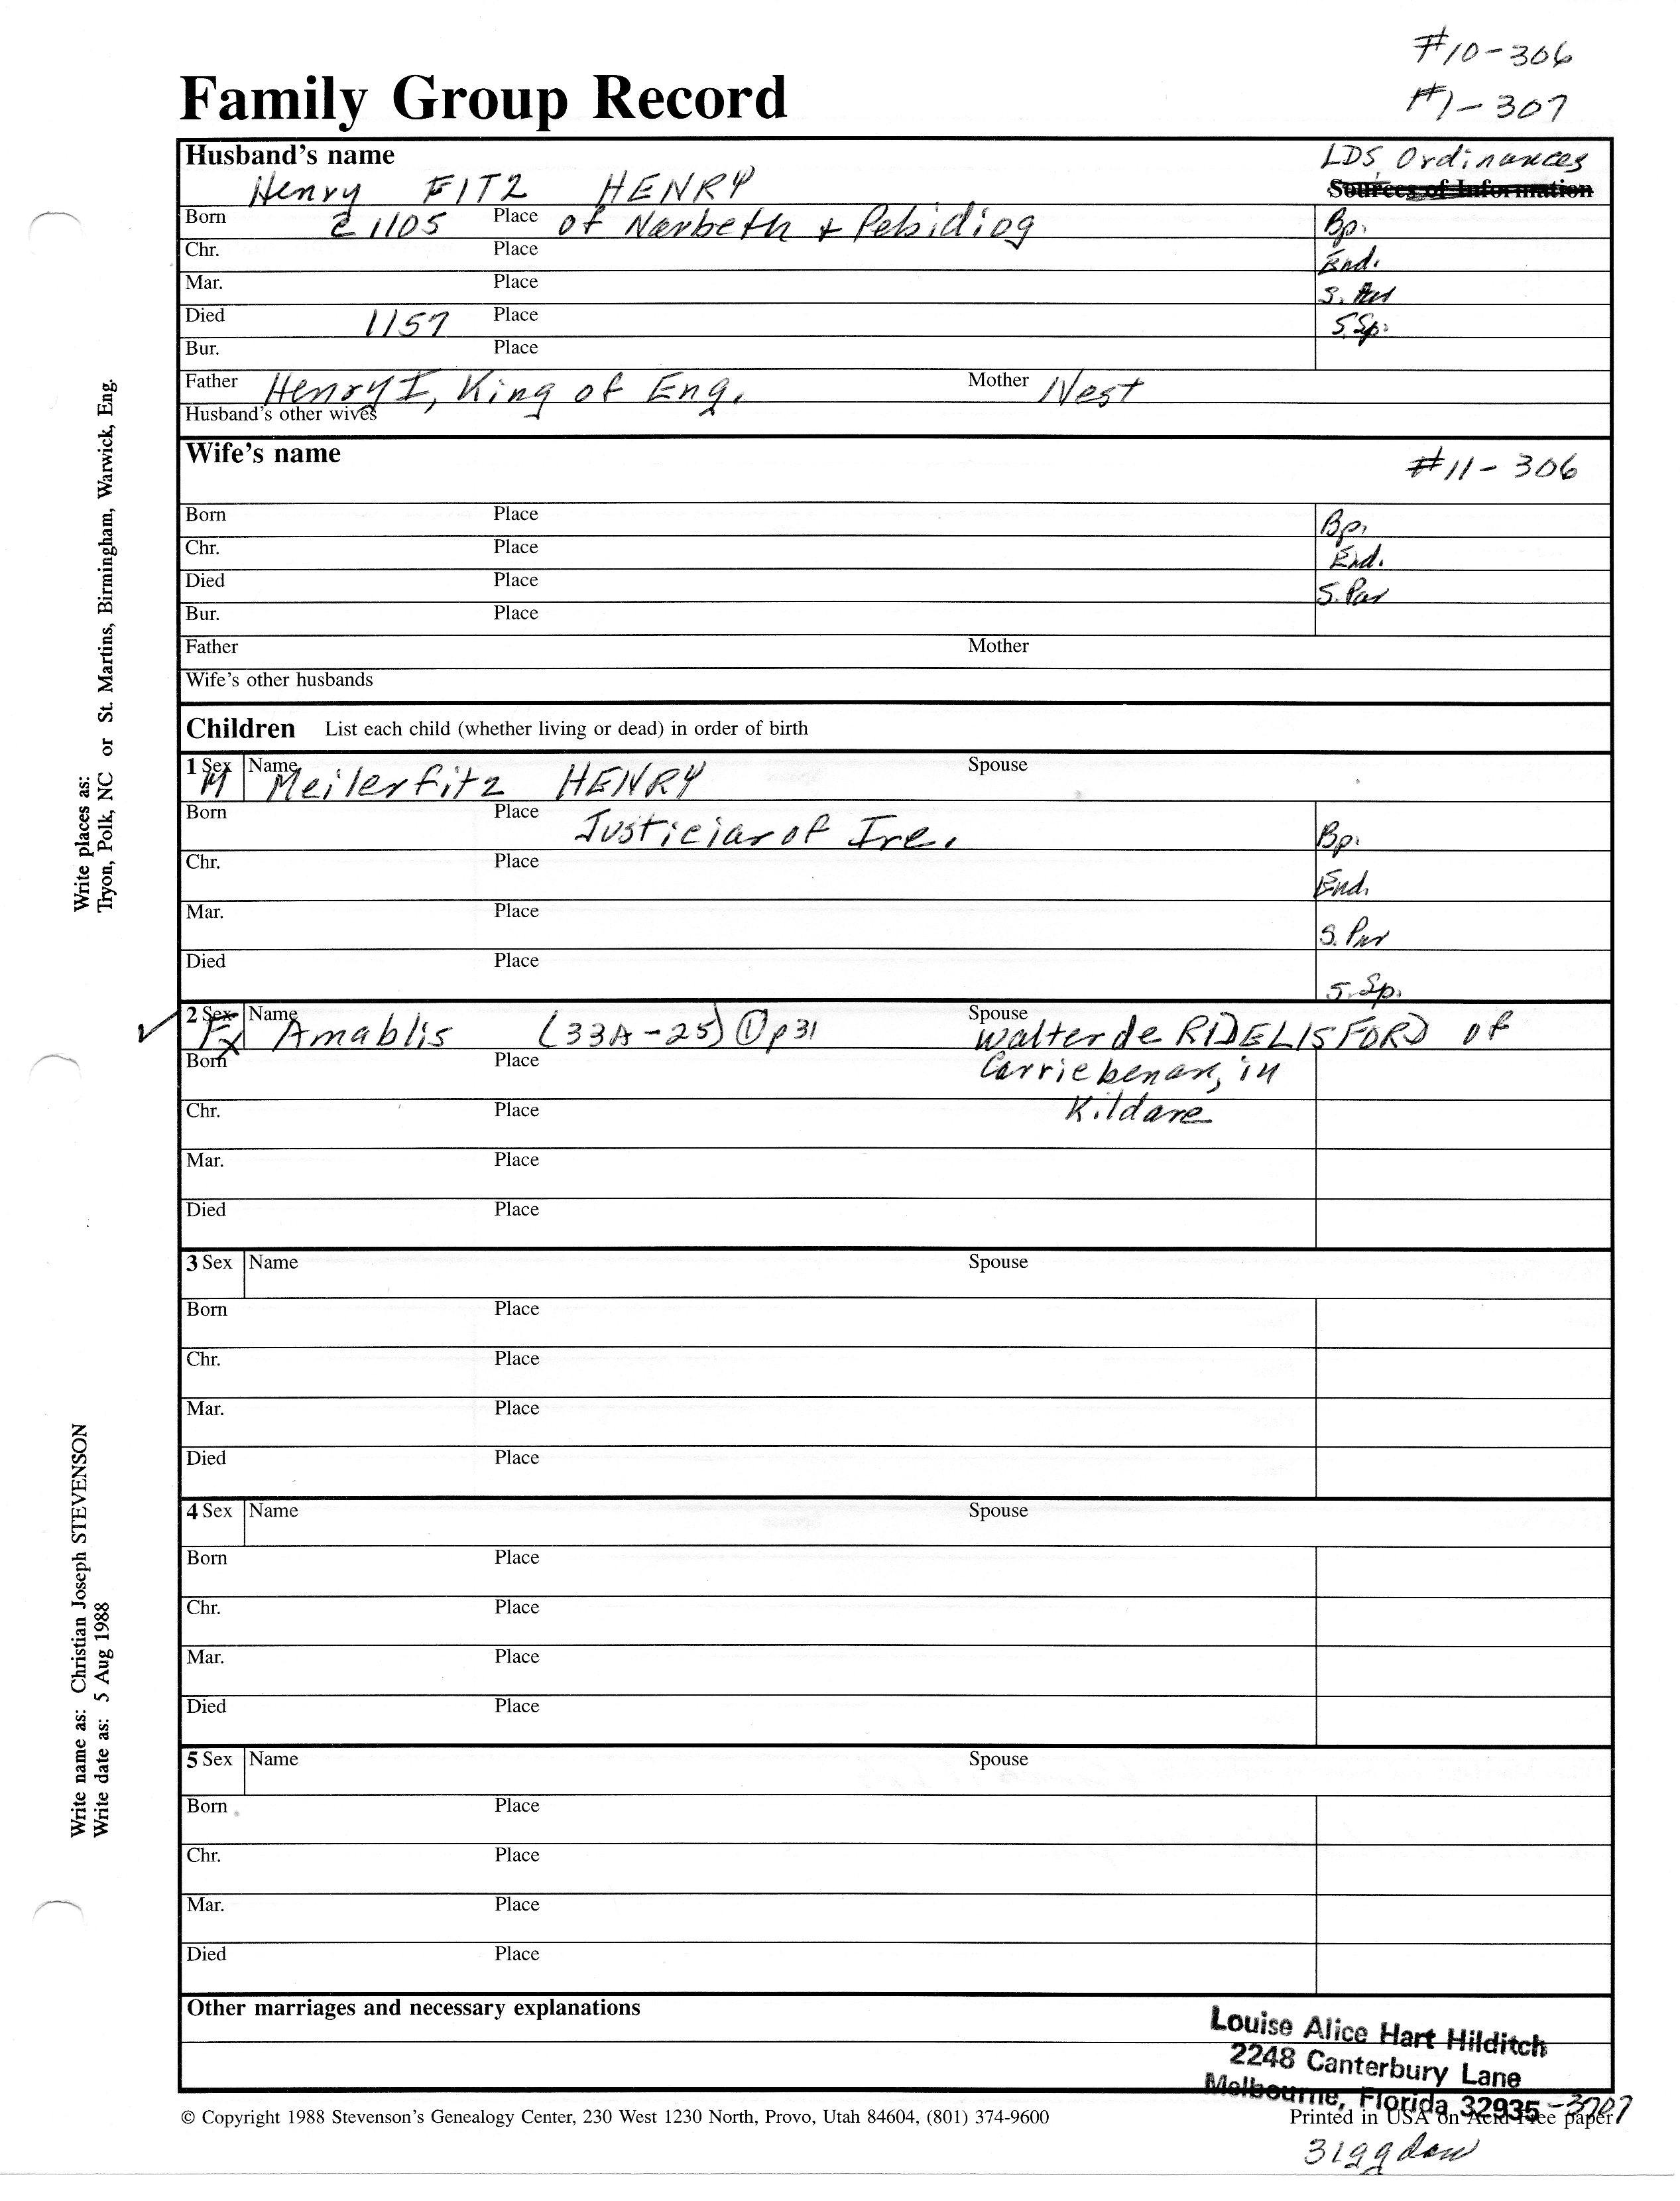 #10-306
#1-307
Family Group Record
Husband's name
LDS Ordinances
Sources of Information
Henry FITZ HENRY
Born c 1105 Place of Narbeth + Pebidiog Bp.
Chr. Place End.
Mar. Place S. Par
Died 1157 Place S.Sp.
Bur. Place
Father Henry I, King of Eng. Mother Nest
Husband's other wives
Wife's name #11-306
Born Place Bp.
Chr. Place End.
Died Place S. Par
Bur. Place
Father Mother
Wife's other husbands
Children List each child (whether living or dead) in order of birth
1 Sex M Name Meilerfitz HENRY Spouse
Born Place Justiciar of Ire. Bp.
Chr. Place End.
Mar. Place S. Par
Died Place S. Sp.
2 Sex F Name Amablis (33A-25) ① p31 Spouse Walter de RIDELISFORD of
Born Place Carriebenan, in
Chr. Place Kildare
Mar. Place
Died Place
3 Sex Name Spouse
Born Place
Chr. Place
Mar. Place
Died Place
4 Sex Name Spouse
Born Place
Chr. Place
Mar. Place
Died Place
5 Sex Name Spouse
Born Place
Chr. Place
Mar. Place
Died Place
Other marriages and necessary explanations
Louise Alice Hart Hilditch
2248 Canterbury Lane
Melbourne, Florida 32935-3707
© Copyright 1988 Stevenson's Genealogy Center, 230 West 1230 North, Provo, Utah 84604, (801) 374-9600
Printed in USA on Acid Free paper
Write places as:
Tryon, Polk, NC or St. Martins, Birmingham, Warwick, Eng.
Write name as: Christian Joseph STEVENSON
Write date as: 5 Aug 1988